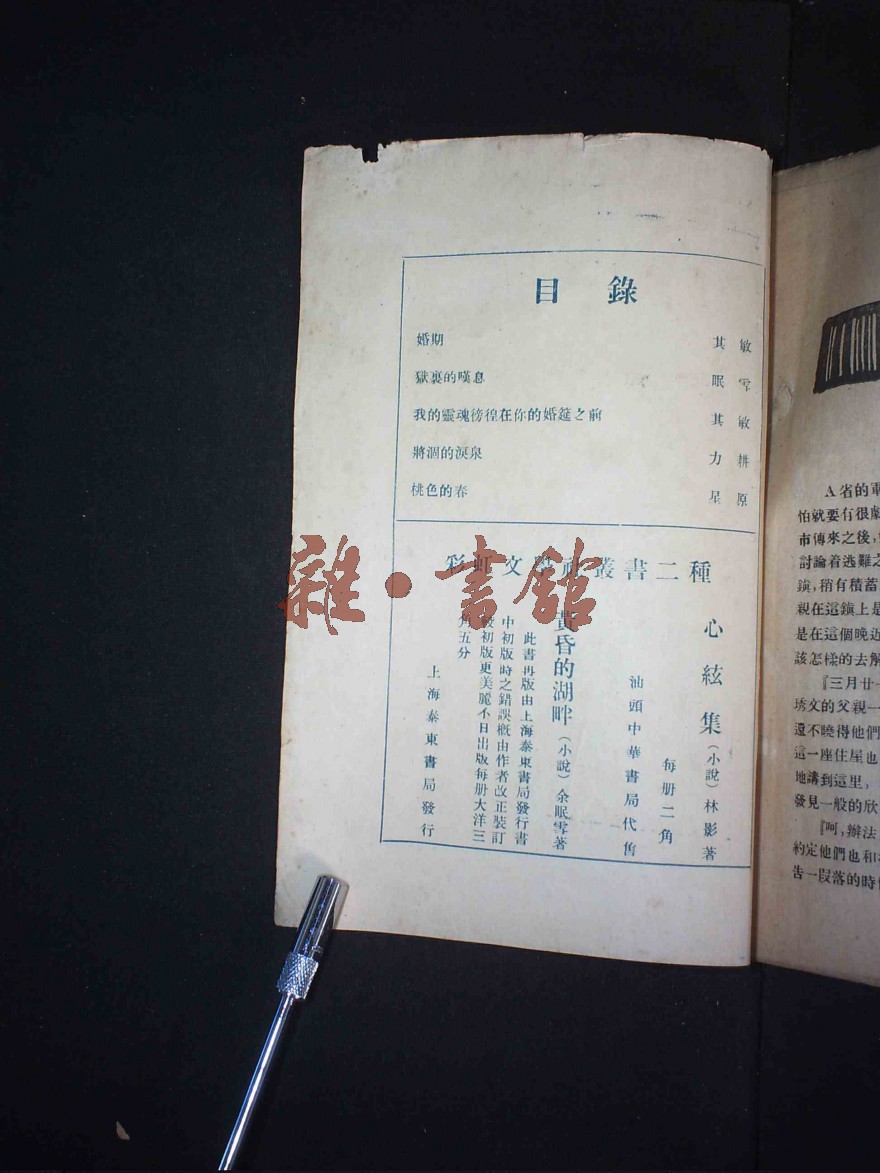 目錄
婚期 其敏
獄裏的嘆息 眠雪
我的靈魂徬徨在你的婚筵之前 其敏
將涸的淚泉 力耕
桃色的春 星原
彩虹文學社叢書二種
心絃集(小說)林影著
每册二角
汕頭中華書局代售
黃昏的湖畔(小說)余眠雪著
此書再版由上海泰東書局發行書
中初版時之錯誤概由作者改正裝訂
較初版更美麗不日出版每册大洋三
角五分
上海泰東書局發行
雜·書館
A省的軍
怕就要有很劇
市傳來之後,
討論着逃難之
鎭,稍有積蓄
親在這鎭上是
是在這個晚近
該怎樣的去解
『三月廿一
琇文的父親一
還不曉得他們
這一座住屋也
地講到這里,
發見一般的欣
『呵,辦法
約定他們也和
告一段落的時